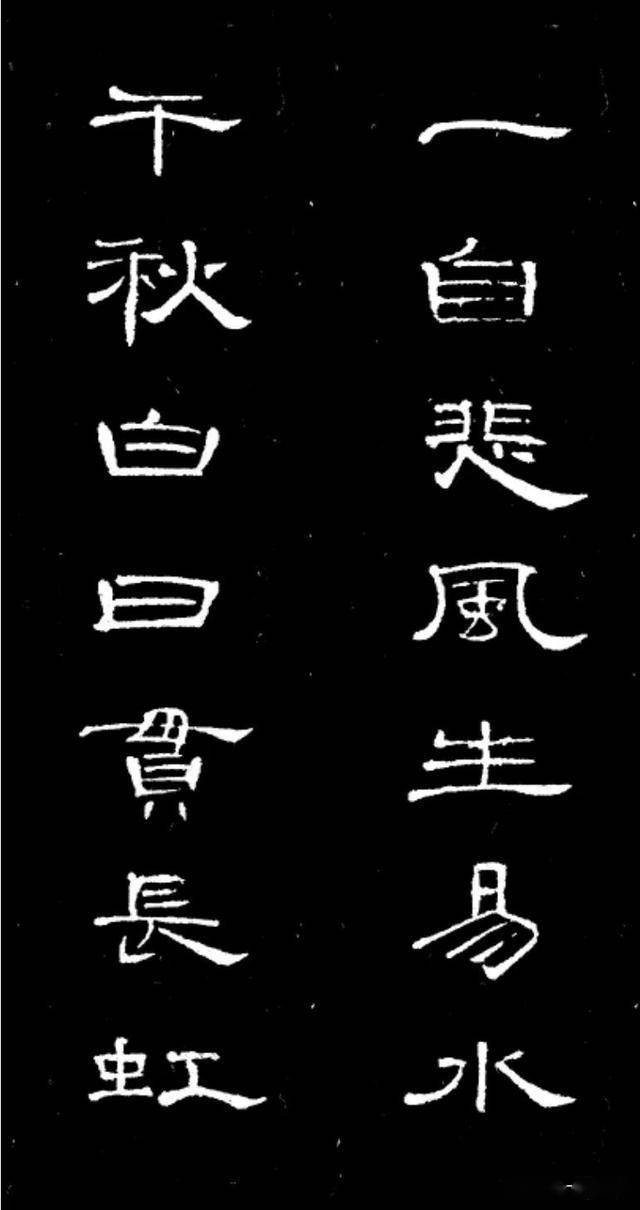 一自悲風生易水
千秋白日貫長虹